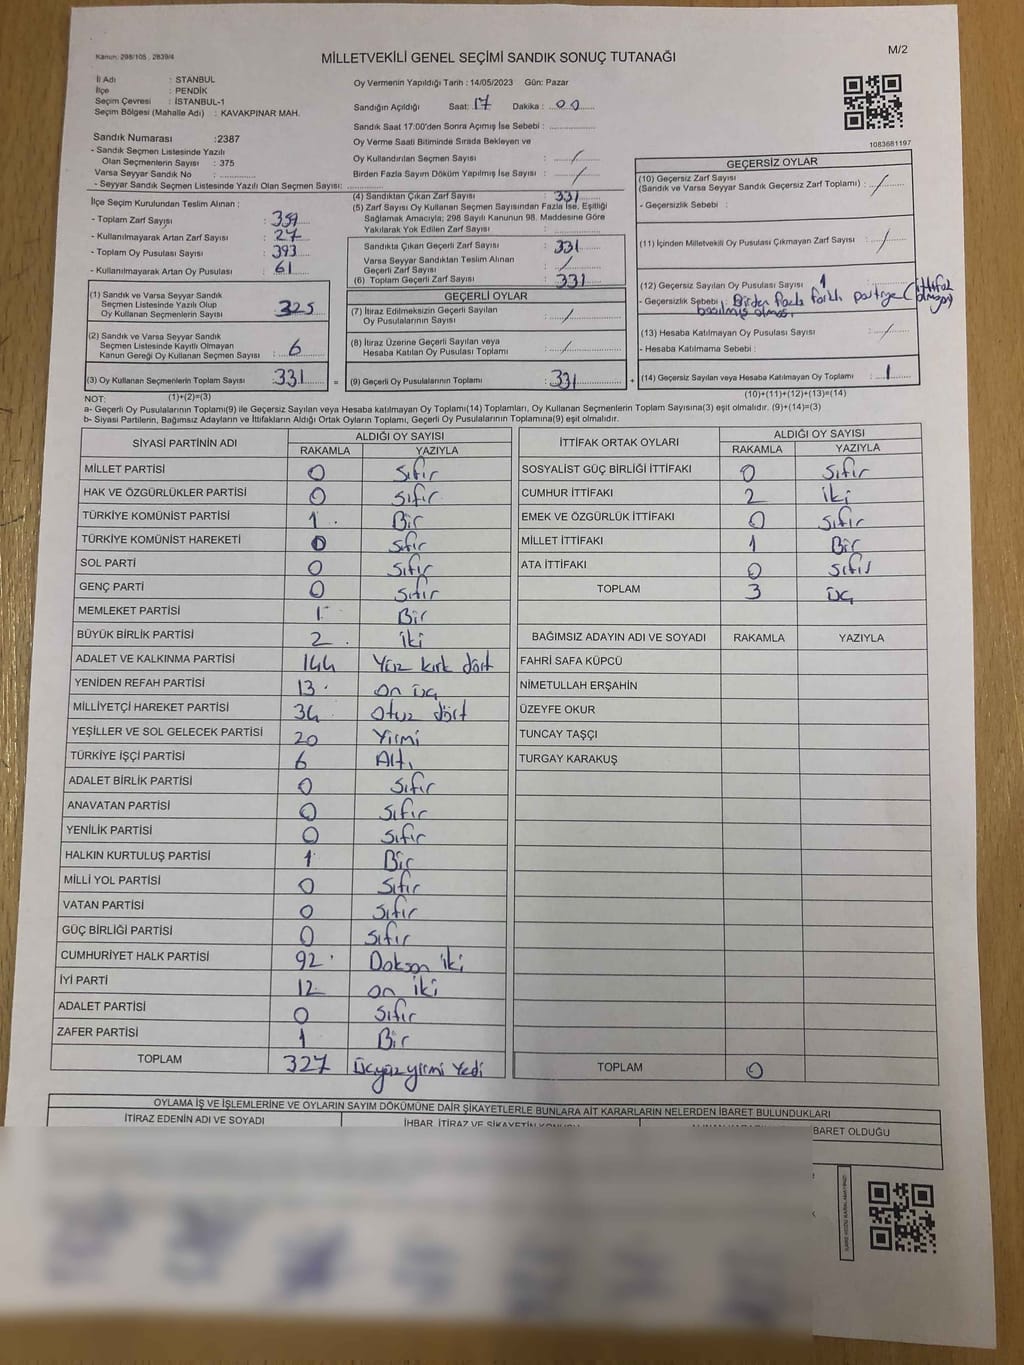 Kanun: 298/105 , 2839/4
MİLLETVEKİLİ GENEL SEÇİMİ SANDIK SONUÇ TUTANAĞI
M/2
İl Adı : STANBUL
İlçe : PENDİK
Seçim Çevresi : İSTANBUL-1
Seçim Bölgesi (Mahalle Adı) : KAVAKPINAR MAH.
Sandık Numarası :2387
- Sandık Seçmen Listesinde Yazılı
Olan Seçmenlerin Sayısı : 375
Varsa Seyyar Sandık No :
- Seyyar Sandık Seçmen Listesinde Yazılı Olan Seçmen Sayısı:
İlçe Seçim Kurulundan Teslim Alınan :
- Toplam Zarf Sayısı : 359
- Kullanılmayarak Artan Zarf Sayısı : 27
- Toplam Oy Pusulası Sayısı : 393
- Kullanılmayarak Artan Oy Pusulası : 61
(1) Sandık ve Varsa Seyyar Sandık
Seçmen Listesinde Yazılı Olup
Oy Kullanan Seçmenlerin Sayısı : 325
(2) Sandık ve Varsa Seyyar Sandık
Seçmen Listesinde Kayıtlı Olmayan
Kanun Gereği Oy Kullanan Seçmen Sayısı : 6
(3) Oy Kullanan Seçmenlerin Toplam Sayısı : 331 =
Oy Vermenin Yapıldığı Tarih : 14/05/2023 Gün: Pazar
Sandığın Açıldığı Saat: 17 Dakika : 00
Sandık Saat 17:00'den Sonra Açımış İse Sebebi :
Oy Verme Saati Bitiminde Sırada Bekleyen ve
Oy Kullandırılan Seçmen Sayısı : /
Birden Fazla Sayım Döküm Yapılmış İse Sayısı : /
(4) Sandıktan Çıkan Zarf Sayısı : 331
(5) Zarf Sayısı Oy Kullanan Seçmen Sayısından Fazla İse, Eşitliği
Sağlamak Amacıyla; 298 Sayılı Kanunun 98. Maddesine Göre
Yakılarak Yok Edilen Zarf Sayısı :
Sandıkta Çıkan Geçerli Zarf Sayısı : 331
Varsa Seyyar Sandıktan Teslim Alınan
Geçerli Zarf Sayısı : /
(6) Toplam Geçerli Zarf Sayısı : 331
GEÇERLİ OYLAR
(7) İtiraz Edilmeksizin Geçerli Sayılan
Oy Pusulalarının Sayısı : /
(8) İtiraz Üzerine Geçerli Sayılan veya
Hesaba Katılan Oy Pusulası Toplamı : /
(9) Geçerli Oy Pusulalarının Toplamı : 331 +
1083681197
GEÇERSİZ OYLAR
(10) Geçersiz Zarf Sayısı
(Sandık ve Varsa Seyyar Sandık Geçersiz Zarf Toplamı) : /
- Geçersizlik Sebebi :
(11) İçinden Milletvekili Oy Pusulası Çıkmayan Zarf Sayısı : /
(12) Geçersiz Sayılan Oy Pusulası Sayısı : 1
- Geçersizlik Sebebi : Birden fazla farklı partiye (ittifak olmayan)
basılmış olması
(13) Hesaba Katılmayan Oy Pusulası Sayısı : /
- Hesaba Katılmama Sebebi :
(14) Geçersiz Sayılan veya Hesaba Katılmayan Oy Toplamı : 1
NOT: (1)+(2)=(3)
(10)+(11)+(12)+(13)=(14)
a- Geçerli Oy Pusulalarının Toplamı(9) ile Geçersiz Sayılan veya Hesaba katılmayan Oy Toplamı(14) Toplamları, Oy Kullanan Seçmenlerin Toplam Sayısına(3) eşit olmalıdır. (9)+(14)=(3)
b- Siyasi Partilerin, Bağımsız Adayların ve İttifakların Aldığı Ortak Oyların Toplamı, Geçerli Oy Pusulalarının Toplamına(9) eşit olmalıdır.
SİYASİ PARTİNİN ADI ALDIĞI OY SAYISI
RAKAMLA YAZIYLA
MİLLET PARTİSİ 0 Sıfır
HAK VE ÖZGÜRLÜKLER PARTİSİ 0 Sıfır
TÜRKİYE KOMÜNİST PARTİSİ 1 Bir
TÜRKİYE KOMÜNİST HAREKETİ 0 Sıfır
SOL PARTİ 0 Sıfır
GENÇ PARTİ 0 Sıfır
MEMLEKET PARTİSİ 1 Bir
BÜYÜK BİRLİK PARTİSİ 2 iki
ADALET VE KALKINMA PARTİSİ 144 Yüz kırk dört
YENİDEN REFAH PARTİSİ 13 on üç
MİLLİYETÇİ HAREKET PARTİSİ 34 Otuz dört
YEŞİLLER VE SOL GELECEK PARTİSİ 20 Yirmi
TÜRKİYE İŞÇİ PARTİSİ 6 Altı
ADALET BİRLİK PARTİSİ 0 Sıfır
ANAVATAN PARTİSİ 0 Sıfır
YENİLİK PARTİSİ 0 Sıfır
HALKIN KURTULUŞ PARTİSİ 1 Bir
MİLLİ YOL PARTİSİ 0 Sıfır
VATAN PARTİSİ 0 Sıfır
GÜÇ BİRLİĞİ PARTİSİ 0 Sıfır
CUMHURİYET HALK PARTİSİ 92 Doksan iki
İYİ PARTİ 12 on iki
ADALET PARTİSİ 0 Sıfır
ZAFER PARTİSİ 1 Bir
TOPLAM 327 üçyüzyirmi Yedi
İTTİFAK ORTAK OYLARI ALDIĞI OY SAYISI
RAKAMLA YAZIYLA
SOSYALİST GÜÇ BİRLİĞİ İTTİFAKI 0 Sıfır
CUMHUR İTTİFAKI 2 iki
EMEK VE ÖZGÜRLÜK İTTİFAKI 0 Sıfır
MİLLET İTTİFAKI 1 Bir
ATA İTTİFAKI 0 Sıfır
TOPLAM 3 üç
BAĞIMSIZ ADAYIN ADI VE SOYADI RAKAMLA YAZIYLA
FAHRİ SAFA KÜPCÜ
NİMETULLAH ERŞAHİN
ÜZEYFE OKUR
TUNCAY TAŞÇI
TURGAY KARAKUŞ
TOPLAM 0
OYLAMA İŞ VE İŞLEMLERİNE VE OYLARIN SAYIM DÖKÜMÜNE DAİR ŞİKAYETLERLE BUNLARA AİT KARARLARIN NELERDEN İBARET BULUNDUKLARI
İTİRAZ EDENİN ADI VE SOYADI İHBAR, İTİRAZ VE ŞİKAYETİN KONUSU BARET OLDUĞU